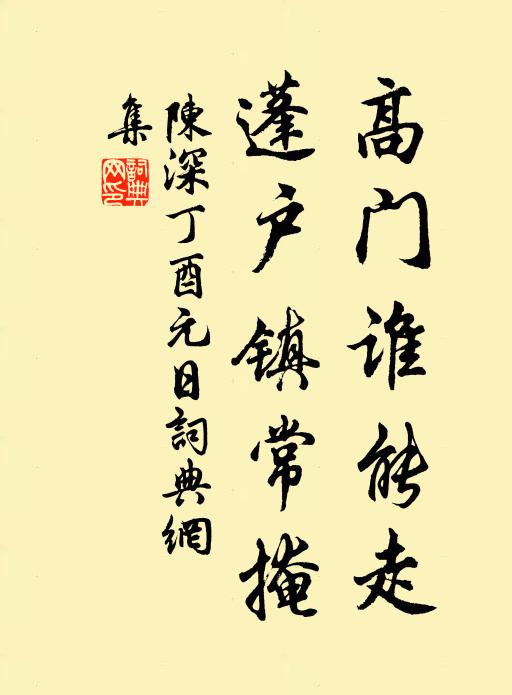 高门谁能走
蓬户镇常掩
陳深丁酉元日詞典網
集
詞典網印